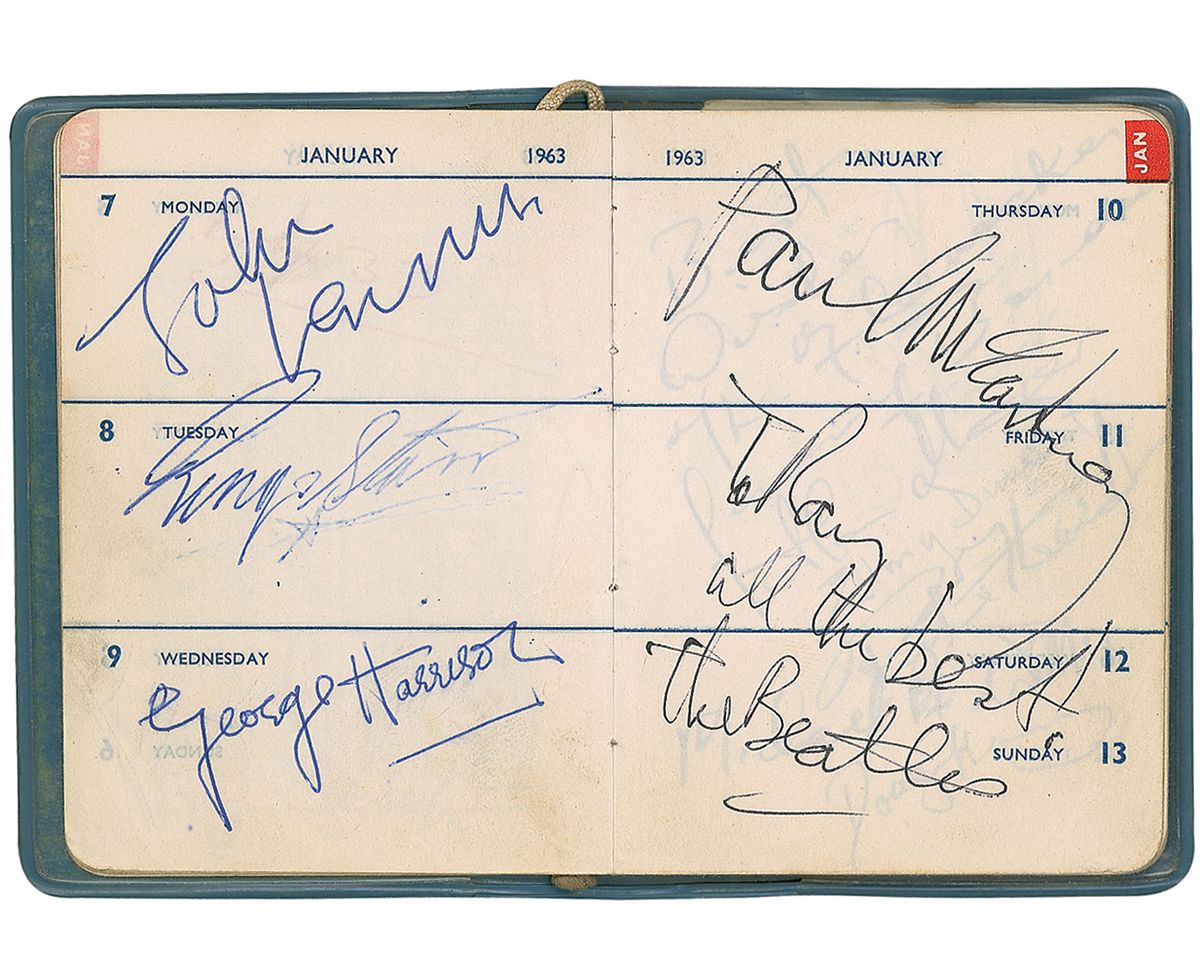 JANUARY 1963
7 MONDAY
John Lennon
8 TUESDAY
Ringo Starr
9 WEDNESDAY
George Harrison
1963 JANUARY
JAN
THURSDAY 10
Paul McCartney
FRIDAY 11
To Ray
all the best
SATURDAY 12
The Beatles
SUNDAY 13